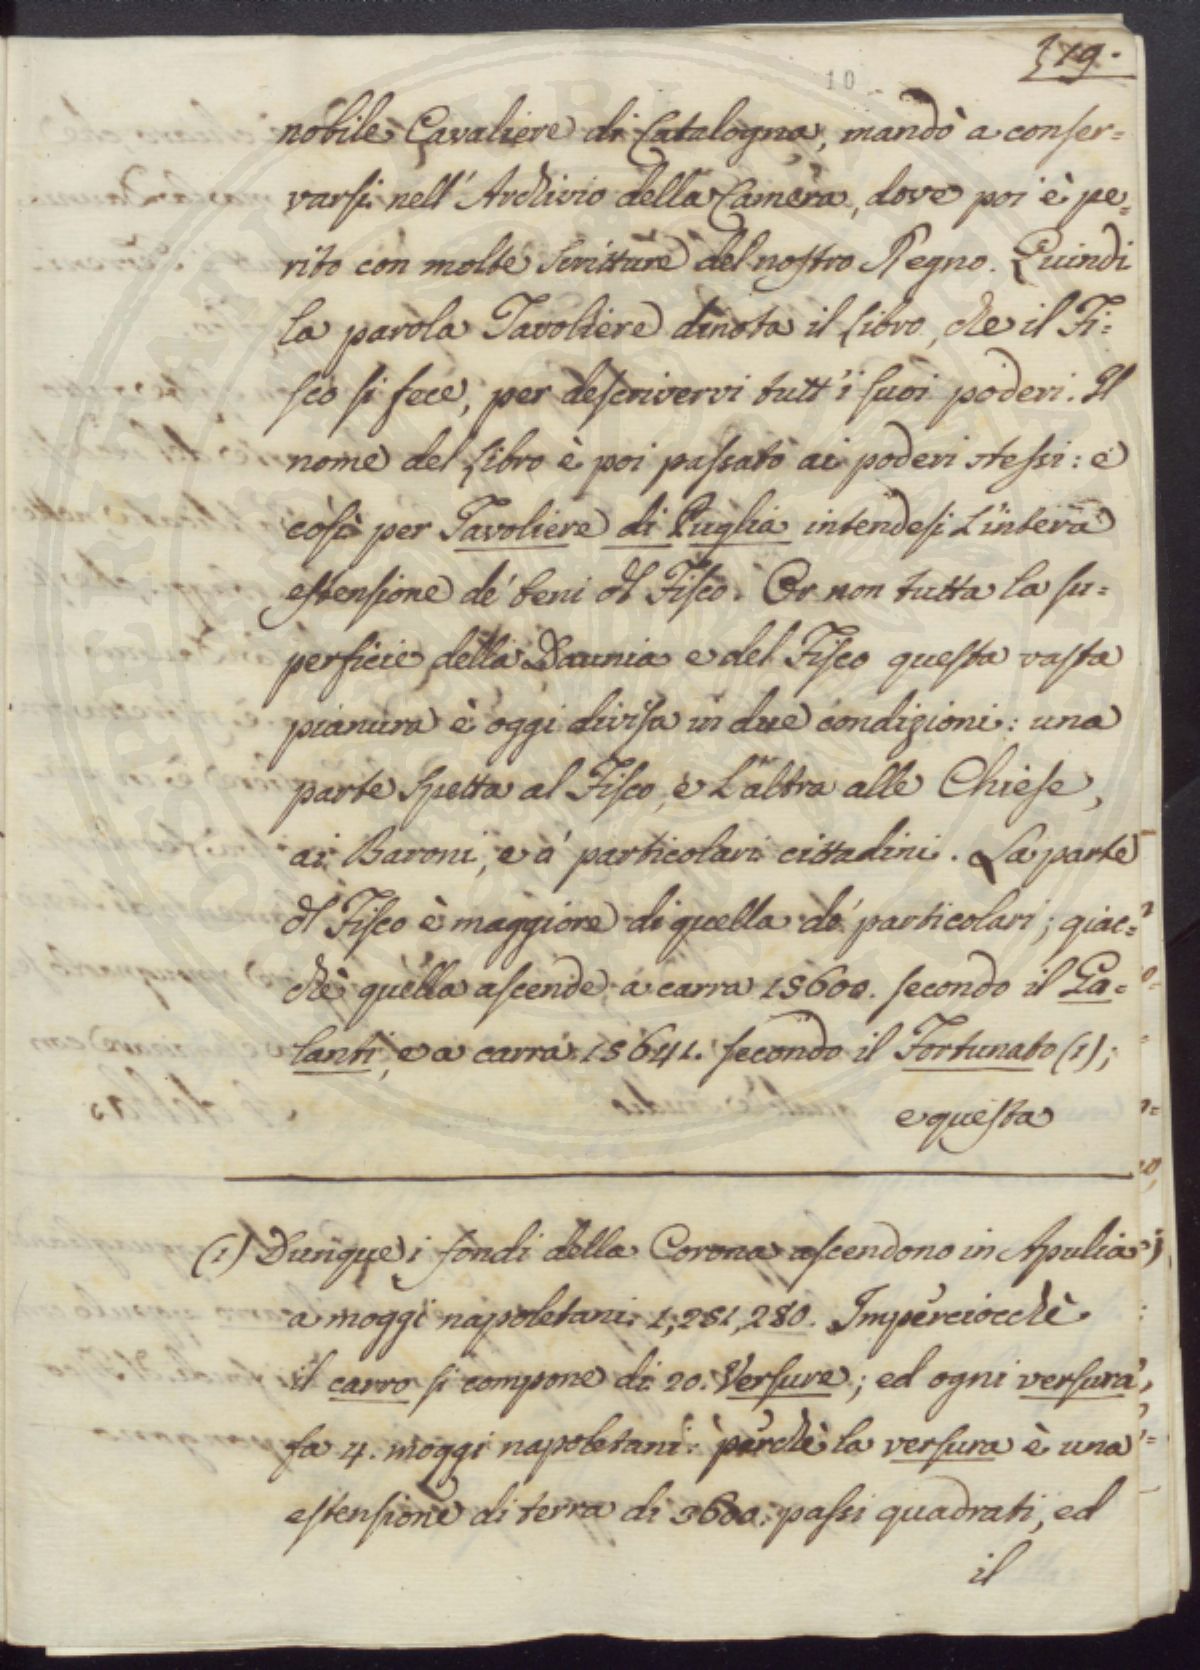 319.
10
nobile Cavaliere di Catalogna, mandò a conser=
varsi nell' Archivio della Camera, dove poi è pe=
rito con molte Scritture del nostro Regno. Quindi
la parola Tavoliere dinota il libro, che il Fi=
sco si fece, per descrivervi tutt'i suoi poderi. Il
nome del libro è poi passato ai poderi stessi: e
così per Tavoliere di Puglia intendesi l'intera
estensione de' beni del Fisco. Or non tutta la su=
perficie della Daunia e del Fisco questa vasta
pianura è oggi divisa in due condizioni: una
parte spetta al Fisco, e l'altra alle Chiese,
ai Baroni, e a' particolari cittadini. La parte
del Fisco è maggiore di quella de' particolari; giac=
chè quella ascende a carra 15600. secondo il Ga=
lanti, e a carra 15641. secondo il Fortunato (1);
e questa
(1) Dunque i fondi della Corona ascendono in Apulia
a moggi napoletani 1,251,280. Imperciocchè
il carro si compone di 20. Versure; ed ogni versura
fa 4. moggi napoletani: perchè la versura è una
estensione di terra di 3600. passi quadrati, ed
il